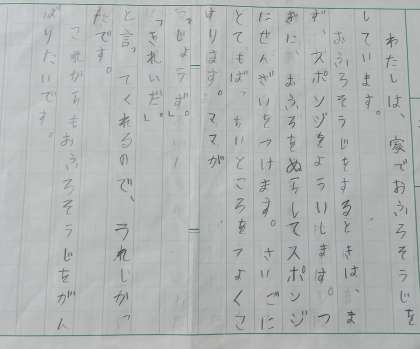 わたしは、家でおふろそうじを
しています。
おふろそうじをするときは、ま
ず、スポンジをよういします。つ
ぎに、おふろをぬらしてスポンジ
にせんざいをつけます。さいごに
とてもばっちいところをつよくこ
すります。ママが
「じょうず。」
「きれいだ。」
と言ってくれるので、うれしかっ
たです。
これからもおふろそうじをがん
ばりたいです。